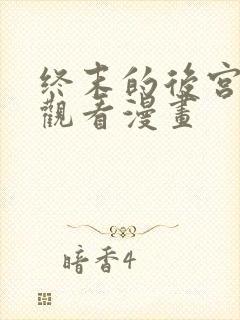 終末的後宮
觀看漫畫
暗香4